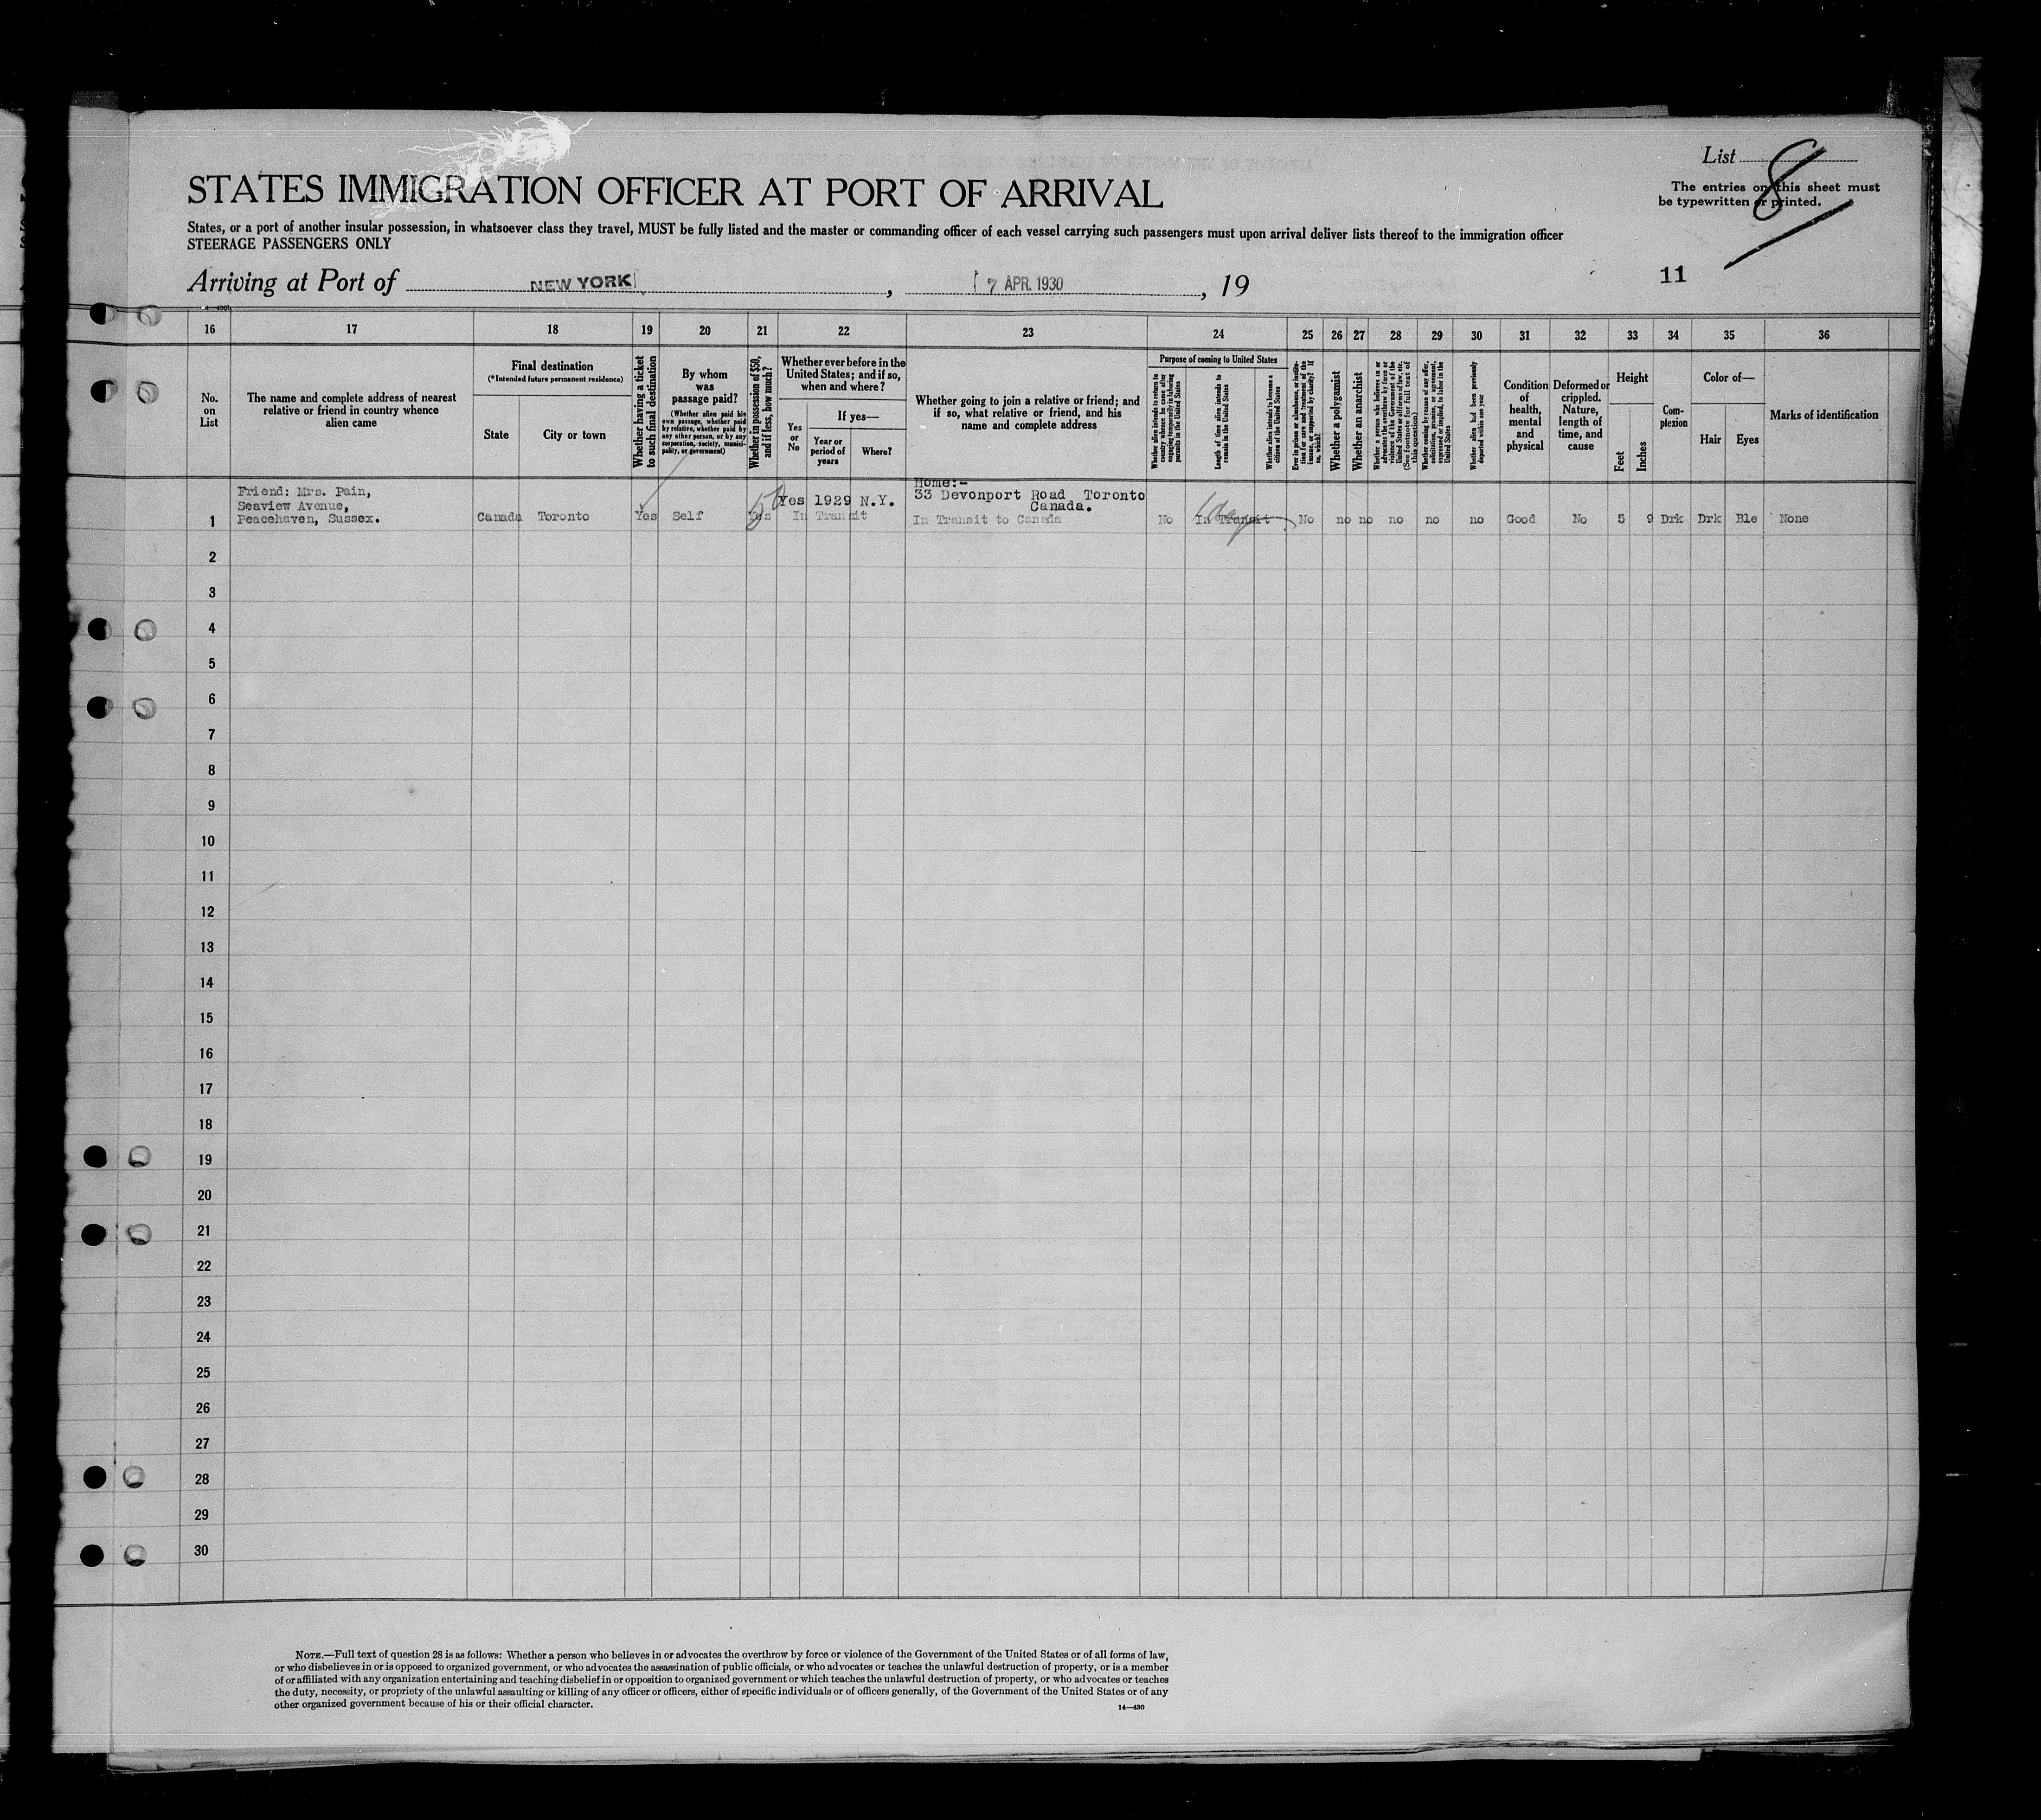 List 8
STATES IMMIGRATION OFFICER AT PORT OF ARRIVAL
The entries on this sheet must
be typewritten or printed.
States, or a port of another insular possession, in whatsoever class they travel, MUST be fully listed and the master or commanding officer of each vessel carrying such passengers must upon arrival deliver lists thereof to the immigration officer
STEERAGE PASSENGERS ONLY
Arriving at Port of NEW YORK, 7 APR. 1930, 19
11
16 17 18 19 20 21 22 23 24 25 26 27 28 29 30 31 32 33 34 35 36
No.
on
List
The name and complete address of nearest
relative or friend in country whence
alien came
Final destination
(*Intended future permanent residence)
State
City or town
Whether having a ticket
to such final destination
By whom
was
passage paid?
(Whether alien paid his
own passage, whether paid
by relative, whether paid by
any other person, or by any
corporation, society, munici-
pality, or government)
Whether in possession of $50,
and if less, how much?
Whether ever before in the
United States; and if so,
when and where?
Yes
or
No
If yes—
Year or
period of
years
Where?
Whether going to join a relative or friend; and
if so, what relative or friend, and his
name and complete address
Purpose of coming to United States
Whether alien intends to return to
country whence he came after
engaging temporarily in laboring
pursuits in the United States
Length of time alien intends to
remain in the United States
Whether alien intends to become a
citizen of the United States
Ever in prison or almshouse, or institu-
tion for care and treatment of the
insane, or supported by charity? If
so, which?
Whether a polygamist
Whether an anarchist
Whether a person who believes in or
advocates the overthrow by force or
violence of the Government of the
United States or all forms of law, etc.
(See footnote for full text of
this question)
Whether coming by reason of any offer,
solicitation, promise, or agreement,
expressed or implied, to labor in the
United States
Whether alien had been previously
deported within one year
Condition
of
health,
mental
and
physical
Deformed or
crippled.
Nature,
length of
time, and
cause
Height
Feet
Inches
Com-
plexion
Color of—
Hair
Eyes
Marks of identification
Friend: Mrs. Pain,
Seaview Avenue,
Peacehaven, Sussex.
Home:-
33 Devonport Road Toronto
Canada.
Yes 1929 N.Y.
50
1 day
1 Canada Toronto Yes Self Yes In Transit In Transit to Canada No In Transit No no no no no no Good No 5 9 Drk Drk Ble None
2
3
4
5
6
7
8
9
10
11
12
13
14
15
16
17
18
19
20
21
22
23
24
25
26
27
28
29
30
NOTE.—Full text of question 28 is as follows: Whether a person who believes in or advocates the overthrow by force or violence of the Government of the United States or of all forms of law,
or who disbelieves in or is opposed to organized government, or who advocates the assassination of public officials, or who advocates or teaches the unlawful destruction of property, or is a member
of or affiliated with any organization entertaining and teaching disbelief in or opposition to organized government or which teaches the unlawful destruction of property, or who advocates or teaches
the duty, necessity, or propriety of the unlawful assaulting or killing of any officer or officers, either of specific individuals or of officers generally, of the Government of the United States or of any
other organized government because of his or their official character.
14—430